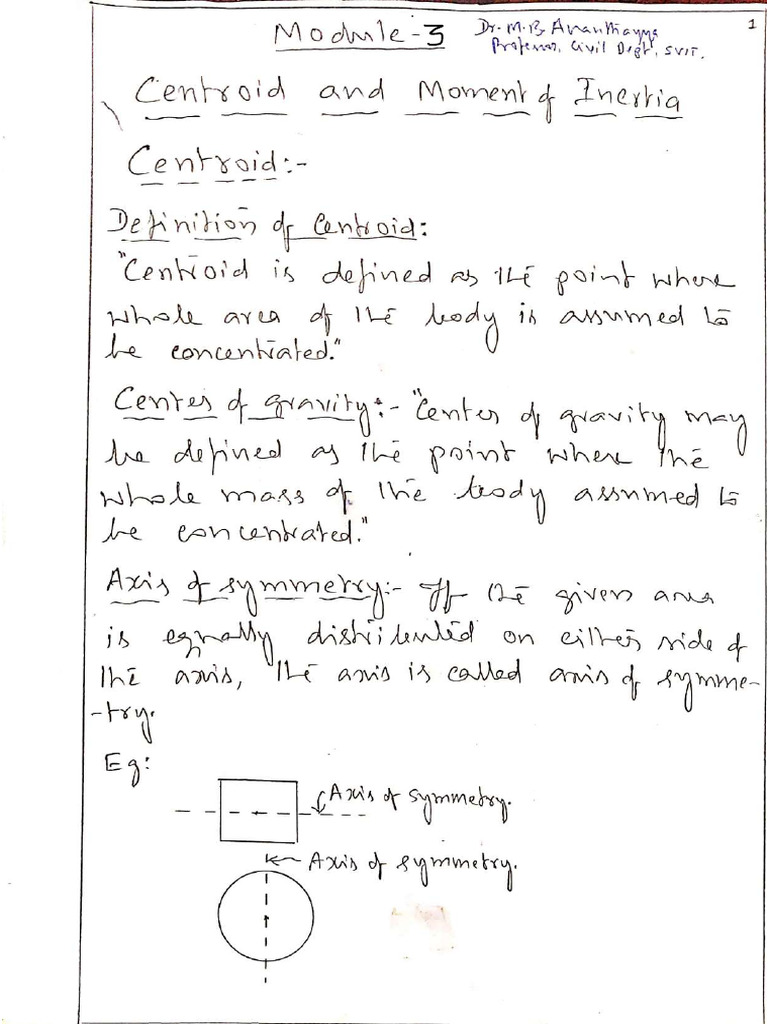 Module-3
Dr. M.B. Ananthayya
Professor, Civil Dept, SVIT.
1
Centroid and Moment of Inertia
Centroid:-
Definition of Centroid:
"Centroid is defined as the point where
whole area of the body is assumed to
be concentrated."
Center of gravity:- "Center of gravity may
be defined as the point where the
whole mass of the body assumed to
be concentrated."
Axis of symmetry:- If the given area
is equally distributed on either side of
the axis, the axis is called axis of symme-
-try.
Eg:
Axis of symmetry.
Axis of symmetry.